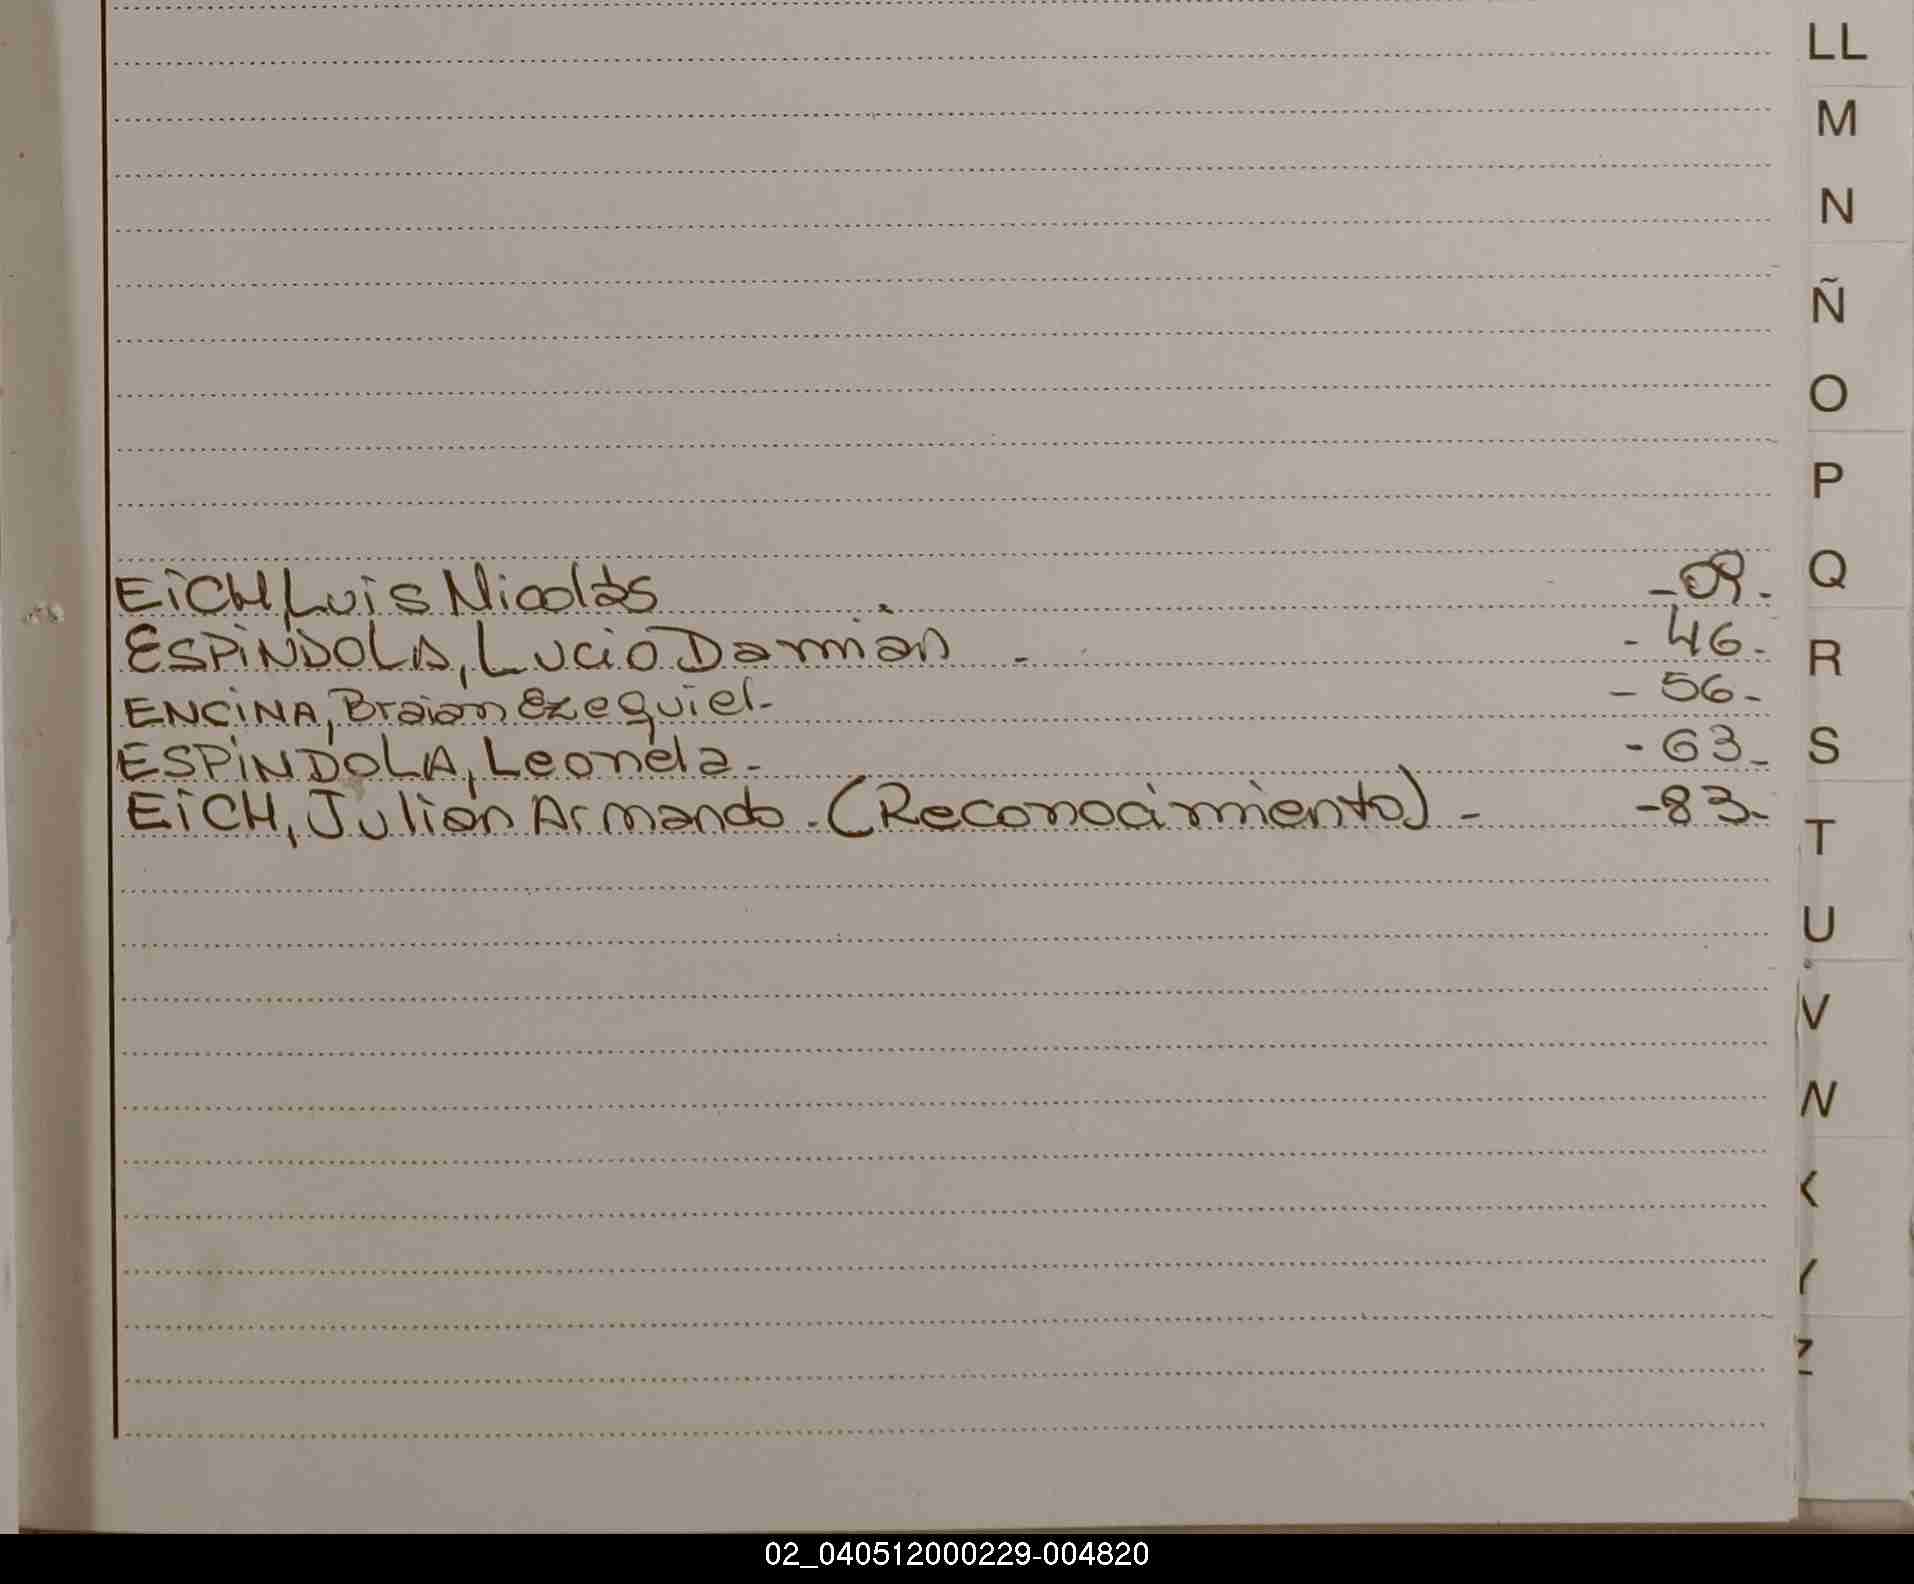 LL
M
N
Ñ
O
P
Q
EiCH, Luis Nicolás - 09 -
ESPiNDOLA, Lucio Damián - - 46 -
R
ENCiNA, Braian Ezequiel - - 56 -
ESPiNDOLA, Leonela - - 63 -
S
EiCH, Julián Armando. (Reconocimiento) - - 83 -
T
U
V
Y
Z
02_040512000229-004820